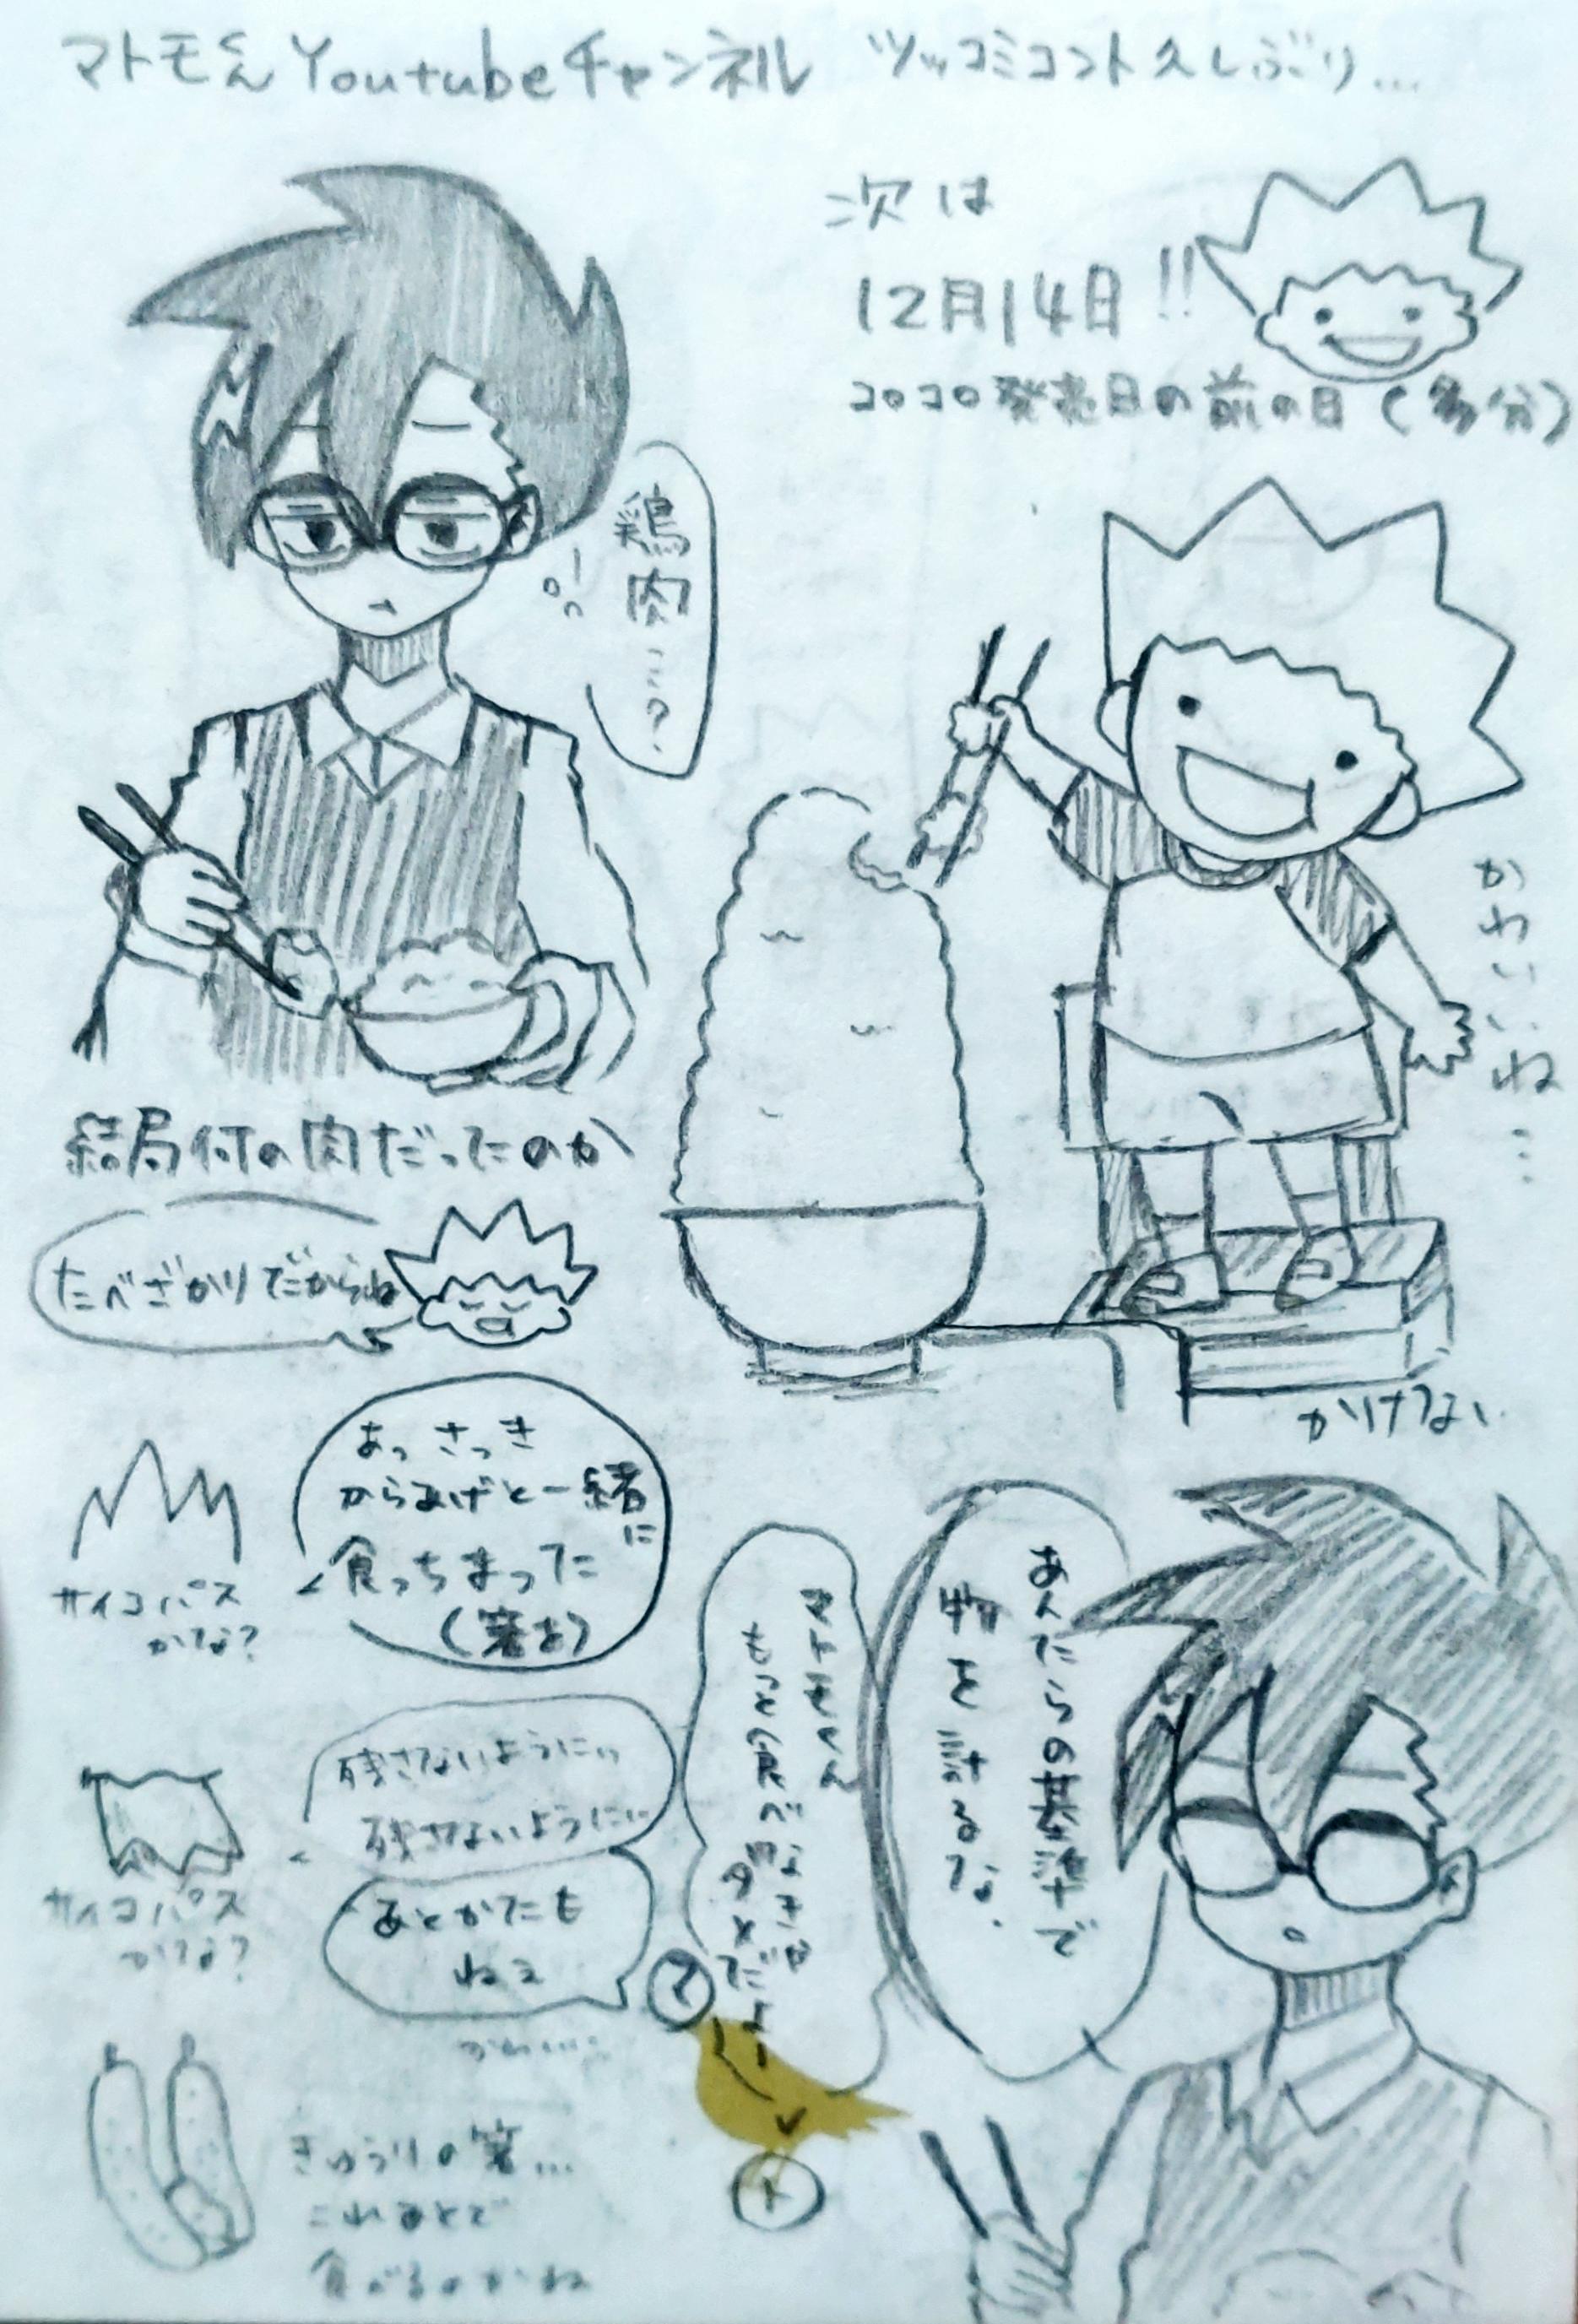 マトモくんYoutubeチャンネル ツッコミコント久しぶり…
次は
12月14日!!
2020発売日の前の日(多分)
鶏肉…?
かわいいね…
結局何の肉だったのか
たべざかりだからね
かけない
あっさっき
からあげと一緒に
食っちまった
(箸を)
サイコパス
かな?
あんたらの基準で
物を計るな。
マトモくん
もっと食べなきゃ
ダメだよ
残さないように…
残さないように…
サイコパス
かな?
あとかたも
ねぇ
マ
ト
きゅうりの箸…
これあとで
食べるのかね